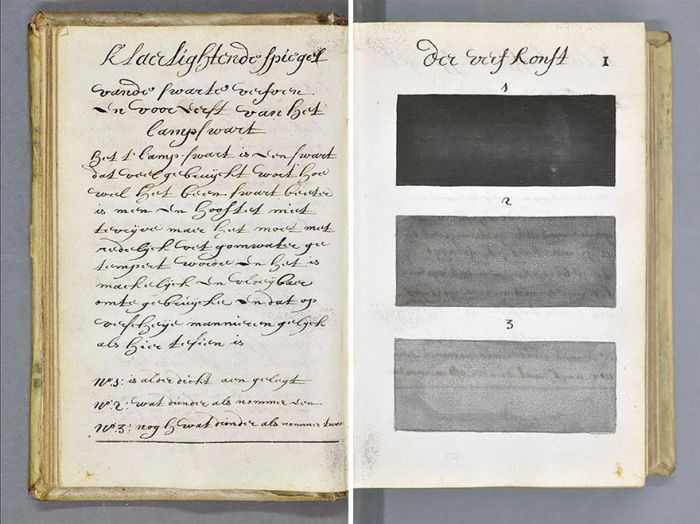 Klaerlightende spiegel
vande swarte verfven
En voor Eerst van het
lampswart
Het t' lampswart is Een swart
dat veel gebruijckt wort hoe
wel het been swart beeter
is men En hooftet niet
te vrijve maer het moet met
redelijck vet gomwater ge
tempert worde En het is
mackelijck En vloeijbaer
om te gebruijcke En dat op
verscheije mannieren gelijck
als hier te sien is
No: 1: is alder dichst aen geleijt
No: 2: wat dunder als nommer Een
No: 3: nogh wat dunder als nommer twee
der verfkonst 1
1
2
3